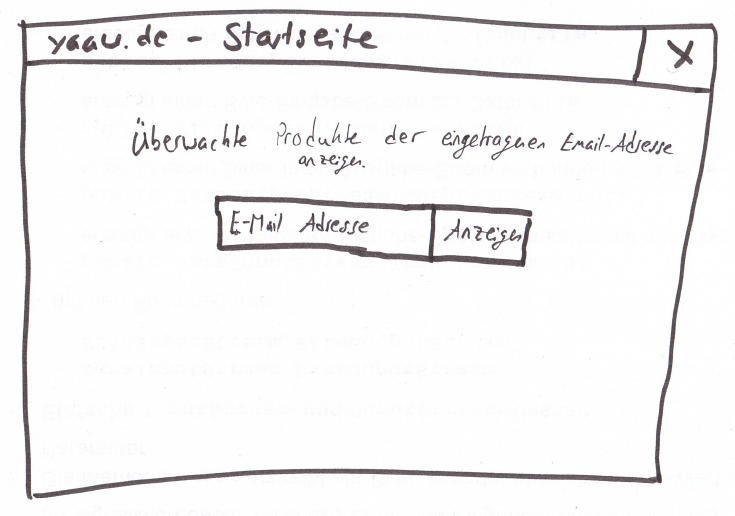 yaaw.de - Startseite X
Überwachte Produkte der eingetragnen Email-Adresse
anzeigen
E-Mail Adresse Anzeigen